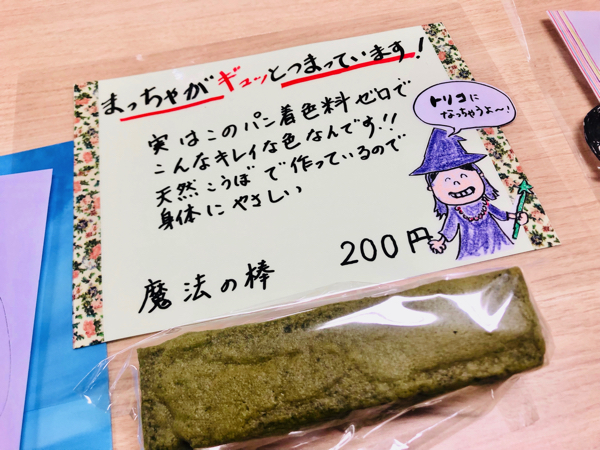 まっちゃがギュッとつまっています!
実はこのパン着色料ゼロで
こんなキレイな色なんです!!
天然こうぼで作っているので
身体にやさしい
トリコに
なっちゃうよ〜!
魔法の棒 200円